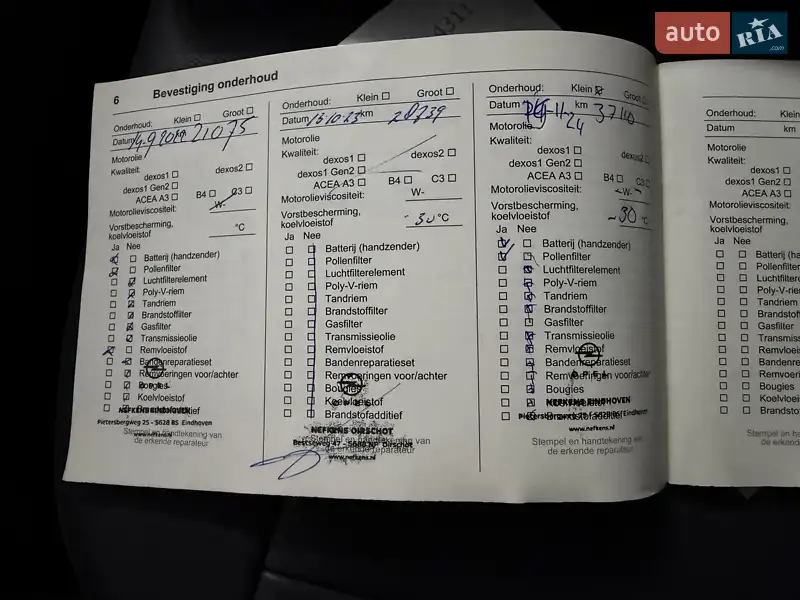 auto RIA .com
4311
6 Bevestiging onderhoud
Onderhoud: Klein Groot
Datum 21075
Motorolie
Kwaliteit:
dexos1 dexos2
dexos1 Gen2
ACEA A3 B4 C3
Motorolieviscositeit: W-
Vorstbescherming,
koelvloeistof °C
Ja Nee
Batterij (handzender)
Pollenfilter
Luchtfilterelement
Poly-V-riem
Tandriem
Brandstoffilter
Gasfilter
Transmissieolie
Remvloeistof
Bandenreparatieset
Remvoeringen voor/achter
Bougies
Koelvloeistof
Brandstofadditief
OPEL
NEFKENS EINDHOVEN
Pietersbergweg 25 - 5628 BS Eindhoven
www.nefkens.nl
Stempel en handtekening van
de erkende reparateur
Onderhoud: Klein Groot
Datum 13 10 23 km 28739
Motorolie
Kwaliteit:
dexos1 dexos2
dexos1 Gen2
ACEA A3 B4 C3
Motorolieviscositeit: W-
Vorstbescherming,
koelvloeistof - 30 °C
Ja Nee
Batterij (handzender)
Pollenfilter
Luchtfilterelement
Poly-V-riem
Tandriem
Brandstoffilter
Gasfilter
Transmissieolie
Remvloeistof
Bandenreparatieset
Remvoeringen voor/achter
Bougies
Koelvloeistof
Brandstofadditief
OPEL
NEFKENS OIRSCHOT
Bestseweg 47 - 5688 NP Oirschot
www.nefkens.nl
Stempel en handtekening van
de erkende reparateur
Onderhoud: Klein Groot
Datum -11-24 km 37110
Motorolie
Kwaliteit:
dexos1 dexos2
dexos1 Gen2
ACEA A3 B4 C3
Motorolieviscositeit: -W-
Vorstbescherming,
koelvloeistof -30 °C
Ja Nee
Batterij (handzender)
Pollenfilter
Luchtfilterelement
Poly-V-riem
Tandriem
Brandstoffilter
Gasfilter
Transmissieolie
Remvloeistof
Bandenreparatieset
Remvoeringen voor/achter
Bougies
Koelvloeistof
Brandstofadditief
OPEL
NEFKENS EINDHOVEN
Pietersbergweg 25 - 5628 BS Eindhoven
www.nefkens.nl
Stempel en handtekening van
de erkende reparateur
Onderhoud: Klein
Datum km
Motorolie
Kwaliteit:
dexos1
dexos1 Gen2
ACEA A3
Motorolieviscositeit:
Vorstbescherming,
koelvloeistof
Ja Nee
Batterij (ha
Pollenfilter
Luchtfilterele
Poly-V-riem
Tandriem
Brandstoffilt
Gasfilter
Transmissie
Remvloeisto
Bandenrepa
Remvoering
Bougies
Koelvloeisto
Brandstofad
Stempel en h
de erke